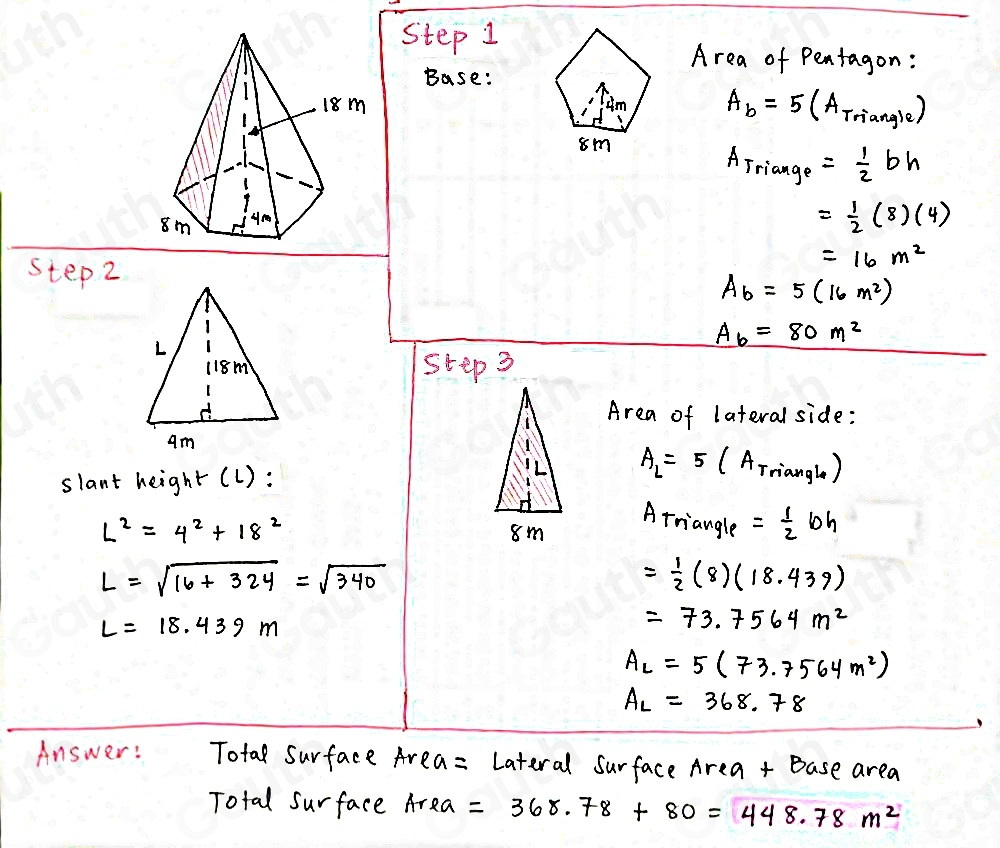 18 m
8 m
4m
Step 1
Base:
4m
8m
Area of Pentagon:
A_b = 5 (A_Triangle)
A_Triange = 1/2 bh
= 1/2 (8)(4)
= 16 m²
A_b = 5 (16 m²)
A_b = 80 m²
Step 2
L
18m
4m
slant height (L) :
L² = 4² + 18²
L = √(16 + 324) = √340
L = 18.439 m
Step 3
L
8m
Area of lateral side:
A_L = 5 (A_Triangle)
A_Triangle = 1/2 bh
= 1/2 (8)(18.439)
= 73.7564 m²
A_L = 5 (73.7564 m²)
A_L = 368.78
Answer:
Total Surface Area = Lateral Surface Area + Base area
Total Surface Area = 368.78 + 80 = 448.78 m²
Gauth